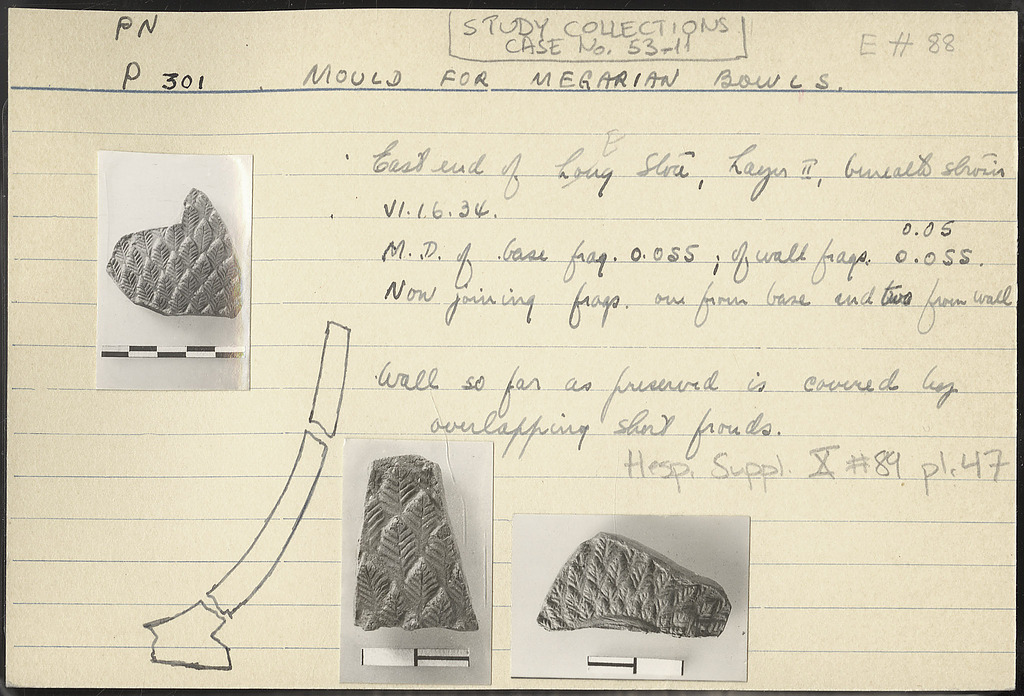 PN
STUDY COLLECTIONS
CASE No. 53-11
E # 88
P 301 . MOULD FOR MEGARIAN BOWLS.
E
East end of Long Stoa, Layer II, beneath
VI.16.34.
0.05
M.D. of base frag. 0.055; of wall frags. 0.055.
Non joining frags. one from base and two from wall
Wall so far as preserved is covered by
overlapping short fronds.
Hesp. Suppl. X #89 pl. 47